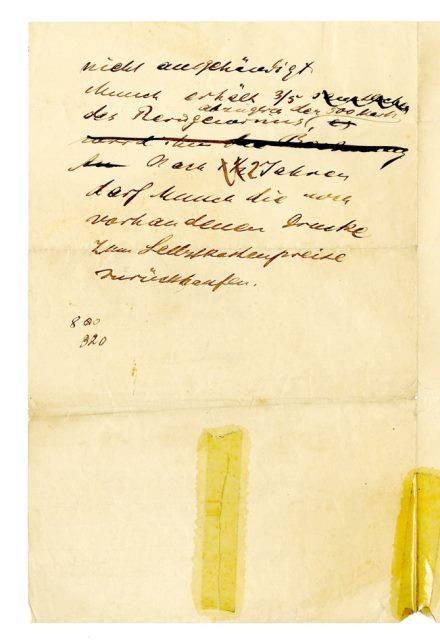 nicht ausgehändigt
Munch erhält 3/5
abzüglich der 500 Mark
des Reingewinns,
Nach 2 Jahren
darf Munch die noch
vorhandenen Drucke
zum Selbstkostenpreise
zurückkaufen.
800
320